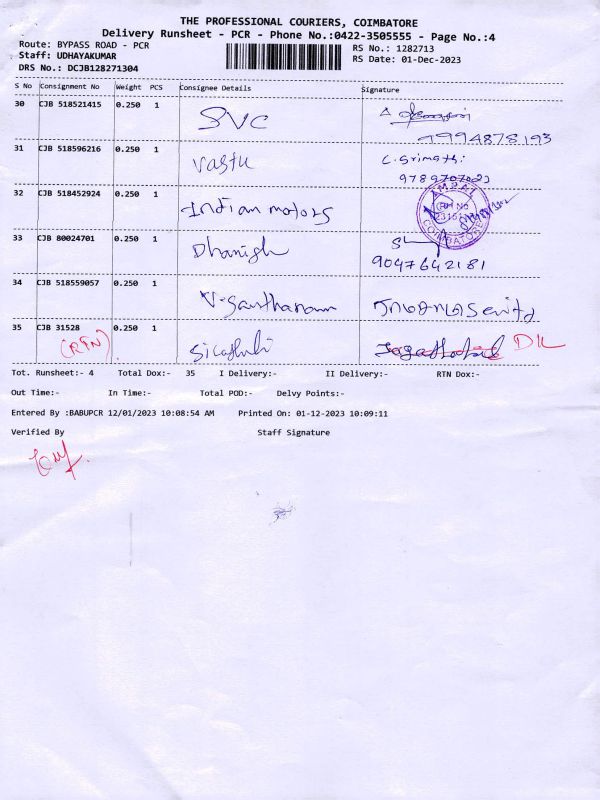 THE PROFESSIONAL COURIERS, COIMBATORE
Delivery Runsheet - PCR - Phone No.:0422-3505555 - Page No.:4
Route: BYPASS ROAD - PCR
RS No.: 1282713
Staff: UDHAYAKUMAR
RS Date: 01-Dec-2023
DRS No.: DCJB128271304
S No Consignment No Weight PCS Consignee Details Signature
30 CJB 518521415 0.250 1 SVC
9994878193
31 CJB 518596216 0.250 1 Vastu C. Srimathi
9789707023
32 CJB 518452924 0.250 1 Indian motors
COIMBATORE
33 CJB 80024701 0.250 1 Dhanish
9047642181
34 CJB 518559057 0.250 1 V. Santhanam
35 CJB 31528 0.250 1
(RTN)
Tot. Runsheet:- 4 Total Dox:- 35 I Delivery:- II Delivery:- RTN Dox:-
Out Time:- In Time:- Total POD:- Delvy Points:-
Entered By :BABUPCR 12/01/2023 10:08:54 AM Printed On: 01-12-2023 10:09:11
Verified By Staff Signature